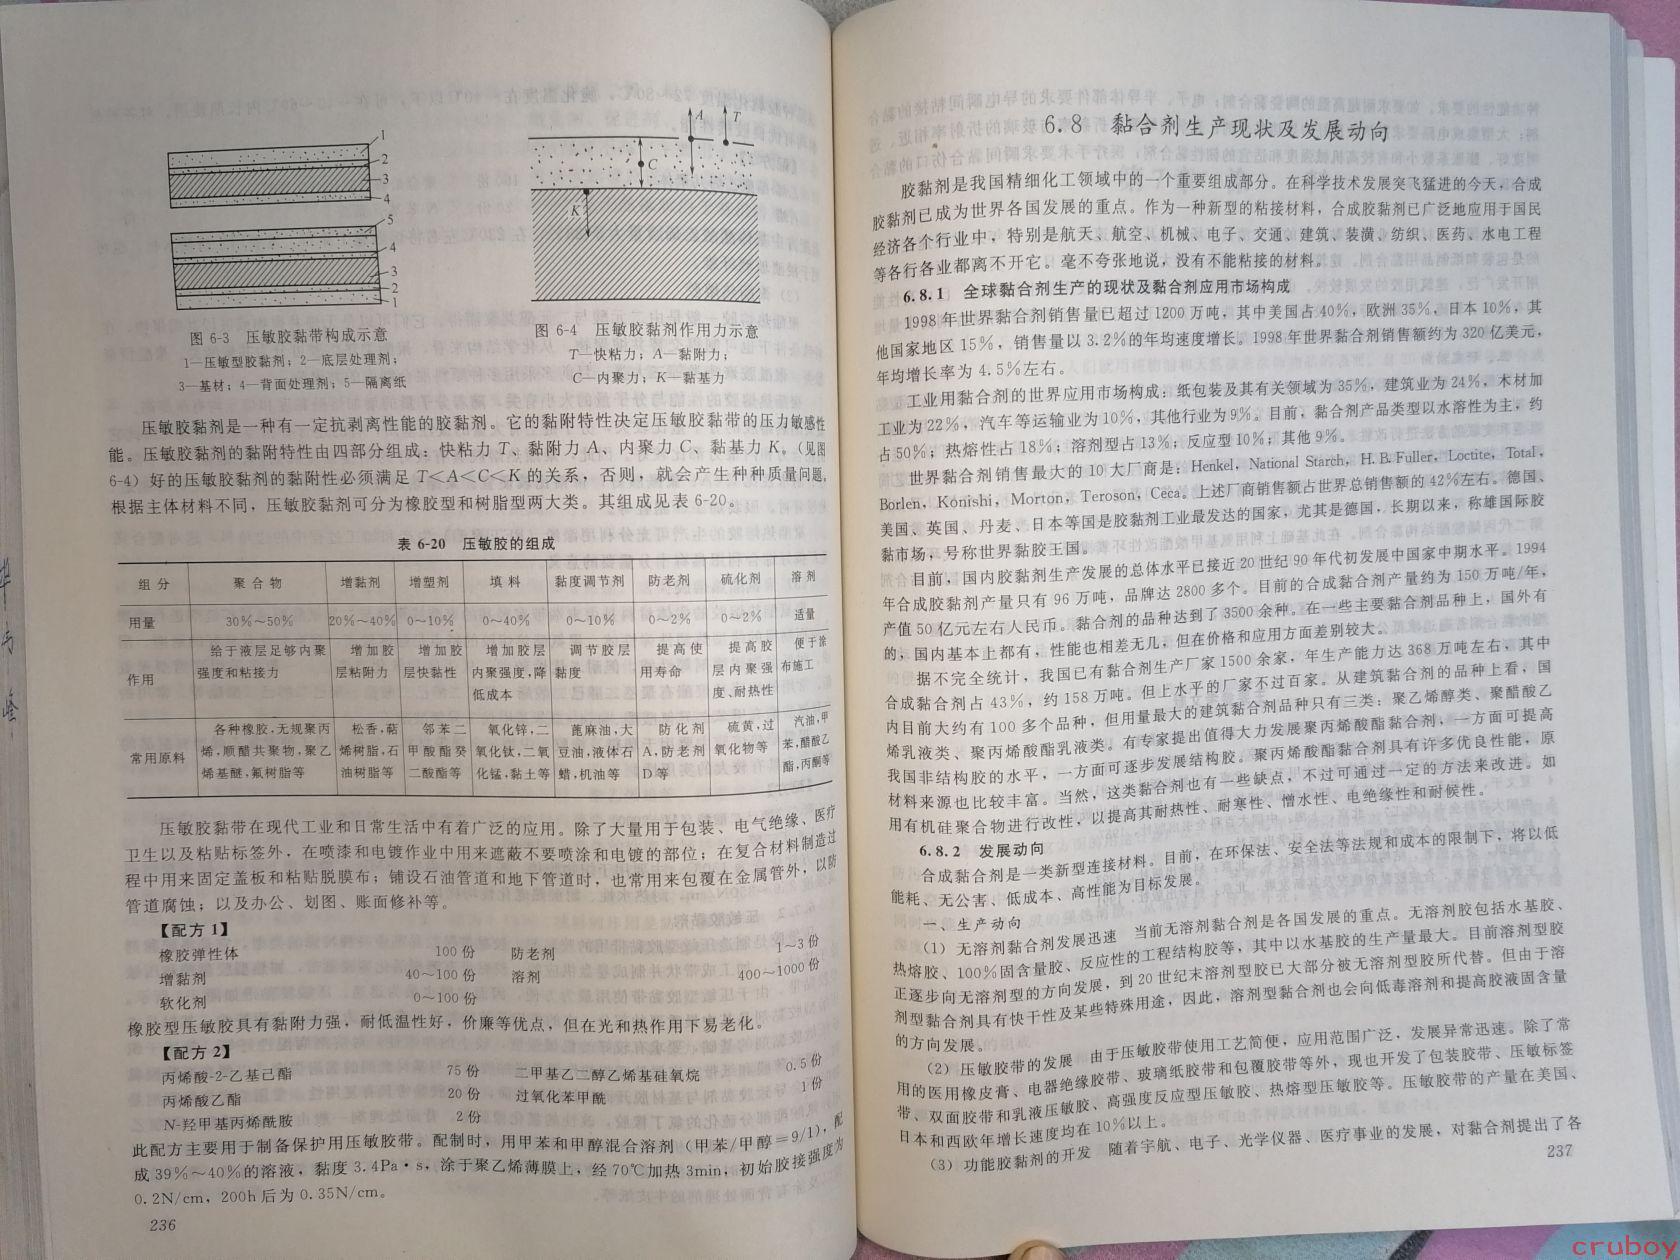 1
2
3
4
5
4
3
2
1
图 6-3 压敏胶黏带构成示意
1—压敏型胶黏剂；2—底层处理剂；
3—基材；4—背面处理剂；5—隔离纸
A
T
C
K
图 6-4 压敏胶黏剂作用力示意
T—快粘力；A—黏附力；
C—内聚力；K—黏基力
压敏胶黏剂是一种有一定抗剥离性能的胶黏剂。它的黏附特性决定压敏胶黏带的压力敏感性
能。压敏胶黏剂的黏附特性由四部分组成：快粘力 T、黏附力 A、内聚力 C、黏基力 K。（见图
6-4）好的压敏胶黏剂的黏附性必须满足 T＜A＜C＜K 的关系，否则，就会产生种种质量问题,
根据主体材料不同，压敏胶黏剂可分为橡胶型和树脂型两大类。其组成见表 6-20。
表 6-20 压敏胶的组成
组 分 聚 合 物 增黏剂 增塑剂 填 料 黏度调节剂 防老剂 硫化剂 溶 剂
用量 30%～50% 20%～40% 0～10% 0～40% 0～10% 0～2% 0～2% 适量
作用
给于液层足够内聚
强度和粘接力
增加胶
层粘附力
增加胶
层快黏性
增加胶层
内聚强度,降
低成本
调节胶层
黏度
提高使
用寿命
提高胶
层内聚强
度、耐热性
便于涂
布施工
常用原料
各种橡胶,无规聚丙
烯,顺醋共聚物,聚乙
烯基醚,氟树脂等
松香,萜
烯树脂,石
油树脂等
邻苯二
甲酸酯癸
二酸酯等
氧化锌,二
氧化钛,二氧
化锰,黏土等
蓖麻油,大
豆油,液体石
蜡,机油等
防化剂
A,防老剂
D等
硫黄,过
氧化物等
汽油,甲
苯,醋酸乙
酯,丙酮等
压敏胶黏带在现代工业和日常生活中有着广泛的应用。除了大量用于包装、电气绝缘、医疗
卫生以及粘贴标签外，在喷漆和电镀作业中用来遮蔽不要喷涂和电镀的部位；在复合材料制造过
程中用来固定盖板和粘贴脱膜布；铺设石油管道和地下管道时，也常用来包覆在金属管外，以防
管道腐蚀；以及办公、划图、账面修补等。
【配方 1】
橡胶弹性体 100 份 防老剂 1～3 份
增黏剂 40～100 份 溶剂 400～1000 份
软化剂 0～100 份
橡胶型压敏胶具有黏附力强，耐低温性好，价廉等优点，但在光和热作用下易老化。
【配方 2】
丙烯酸-2-乙基己酯 75 份 二甲基乙二醇乙烯基硅氧烷 0.5 份
丙烯酸乙酯 20 份 过氧化苯甲酰 1 份
N-羟甲基丙烯酰胺 2 份
此配方主要用于制备保护用压敏胶带。配制时，用甲苯和甲醇混合溶剂（甲苯/甲醇＝9/1），配
成 39%～40%的溶液，黏度 3.4Pa·s，涂于聚乙烯薄膜上，经 70℃加热 3min，初始胶接强度为
0.2N/cm，200h 后为 0.35N/cm。
236
6.8 黏合剂生产现状及发展动向
胶黏剂是我国精细化工领域中的一个重要组成部分。在科学技术发展突飞猛进的今天，合成
胶黏剂已成为世界各国发展的重点。作为一种新型的粘接材料，合成胶黏剂已广泛地应用于国民
经济各个行业中，特别是航天、航空、机械、电子、交通、建筑、装潢、纺织、医药、水电工程
等各行各业都离不开它。毫不夸张地说，没有不能粘接的材料。
6.8.1 全球黏合剂生产的现状及黏合剂应用市场构成
1998 年世界黏合剂销售量已超过 1200 万吨，其中美国占 40%，欧洲 35%，日本 10%，其
他国家地区 15%，销售量以 3.2%的年均速度增长。1998 年世界黏合剂销售额约为 320 亿美元，
年均增长率为 4.5%左右。
工业用黏合剂的世界应用市场构成：纸包装及其有关领域为 35%，建筑业为 24%，木材加
工业为 22%，汽车等运输业为 10%，其他行业为 9%。目前，黏合剂产品类型以水溶性为主，约
占 50%；热熔性占 18%；溶剂型占 13%；反应型 10%；其他 9%。
世界黏合剂销售最大的 10 大厂商是：Henkel，National Starch，H. B. Fuller，Loctite，Total，
Borlen，Konishi，Morton，Teroson，Ceca。上述厂商销售额占世界总销售额的 42%左右。德国、
美国、英国、丹麦、日本等国是胶黏剂工业最发达的国家，尤其是德国，长期以来，称雄国际胶
黏市场，号称世界黏胶王国。
目前，国内胶黏剂生产发展的总体水平已接近 20 世纪 90 年代初发展中国家中期水平。1994
年合成胶黏剂产量只有 96 万吨，品牌达 2800 多个。目前的合成黏合剂产量约为 150 万吨/年，
产值 50 亿元左右人民币。黏合剂的品种达到了 3500 余种。在一些主要黏合剂品种上，国外有
的，国内基本上都有，性能也相差无几，但在价格和应用方面差别较大。
据不完全统计，我国已有黏合剂生产厂家 1500 余家，年生产能力达 368 万吨左右，其中
合成黏合剂占 43%，约 158 万吨。但上水平的厂家不过百家。从建筑黏合剂的品种上看，国
内目前大约有 100 多个品种，但用量最大的建筑黏合剂品种只有三类：聚乙烯醇类、聚醋酸乙
烯乳液类、聚丙烯酸酯乳液类。有专家提出值得大力发展聚丙烯酸酯黏合剂，一方面可提高
我国非结构胶的水平，一方面可逐步发展结构胶。聚丙烯酸酯黏合剂具有许多优良性能，原
材料来源也比较丰富。当然，这类黏合剂也有一些缺点，不过可通过一定的方法来改进。如
用有机硅聚合物进行改性，以提高其耐热性、耐寒性、憎水性、电绝缘性和耐候性。
6.8.2 发展动向
合成黏合剂是一类新型连接材料。目前，在环保法、安全法等法规和成本的限制下，将以低
能耗、无公害、低成本、高性能为目标发展。
一、生产动向
（1）无溶剂黏合剂发展迅速 当前无溶剂黏合剂是各国发展的重点。无溶剂胶包括水基胶、
热熔胶、100%固含量胶、反应性的工程结构胶等，其中以水基胶的生产量最大。目前溶剂型胶
正逐步向无溶剂型的方向发展，到 20 世纪末溶剂型胶已大部分被无溶剂型胶所代替。但由于溶
剂型黏合剂具有快干性及某些特殊用途，因此，溶剂型黏合剂也会向低毒溶剂和提高胶液固含量
的方向发展。
（2）压敏胶带的发展 由于压敏胶带使用工艺简便，应用范围广泛，发展异常迅速。除了常
用的医用橡皮膏、电器绝缘胶带、玻璃纸胶带和包覆胶带等外，现也开发了包装胶带、压敏标签
带、双面胶带和乳液压敏胶、高强度反应型压敏胶、热熔型压敏胶等。压敏胶带的产量在美国、
日本和西欧年增长速度均在 10%以上。
（3）功能胶黏剂的开发 随着宇航、电子、光学仪器、医疗事业的发展，对黏合剂提出了各
237
cruboy